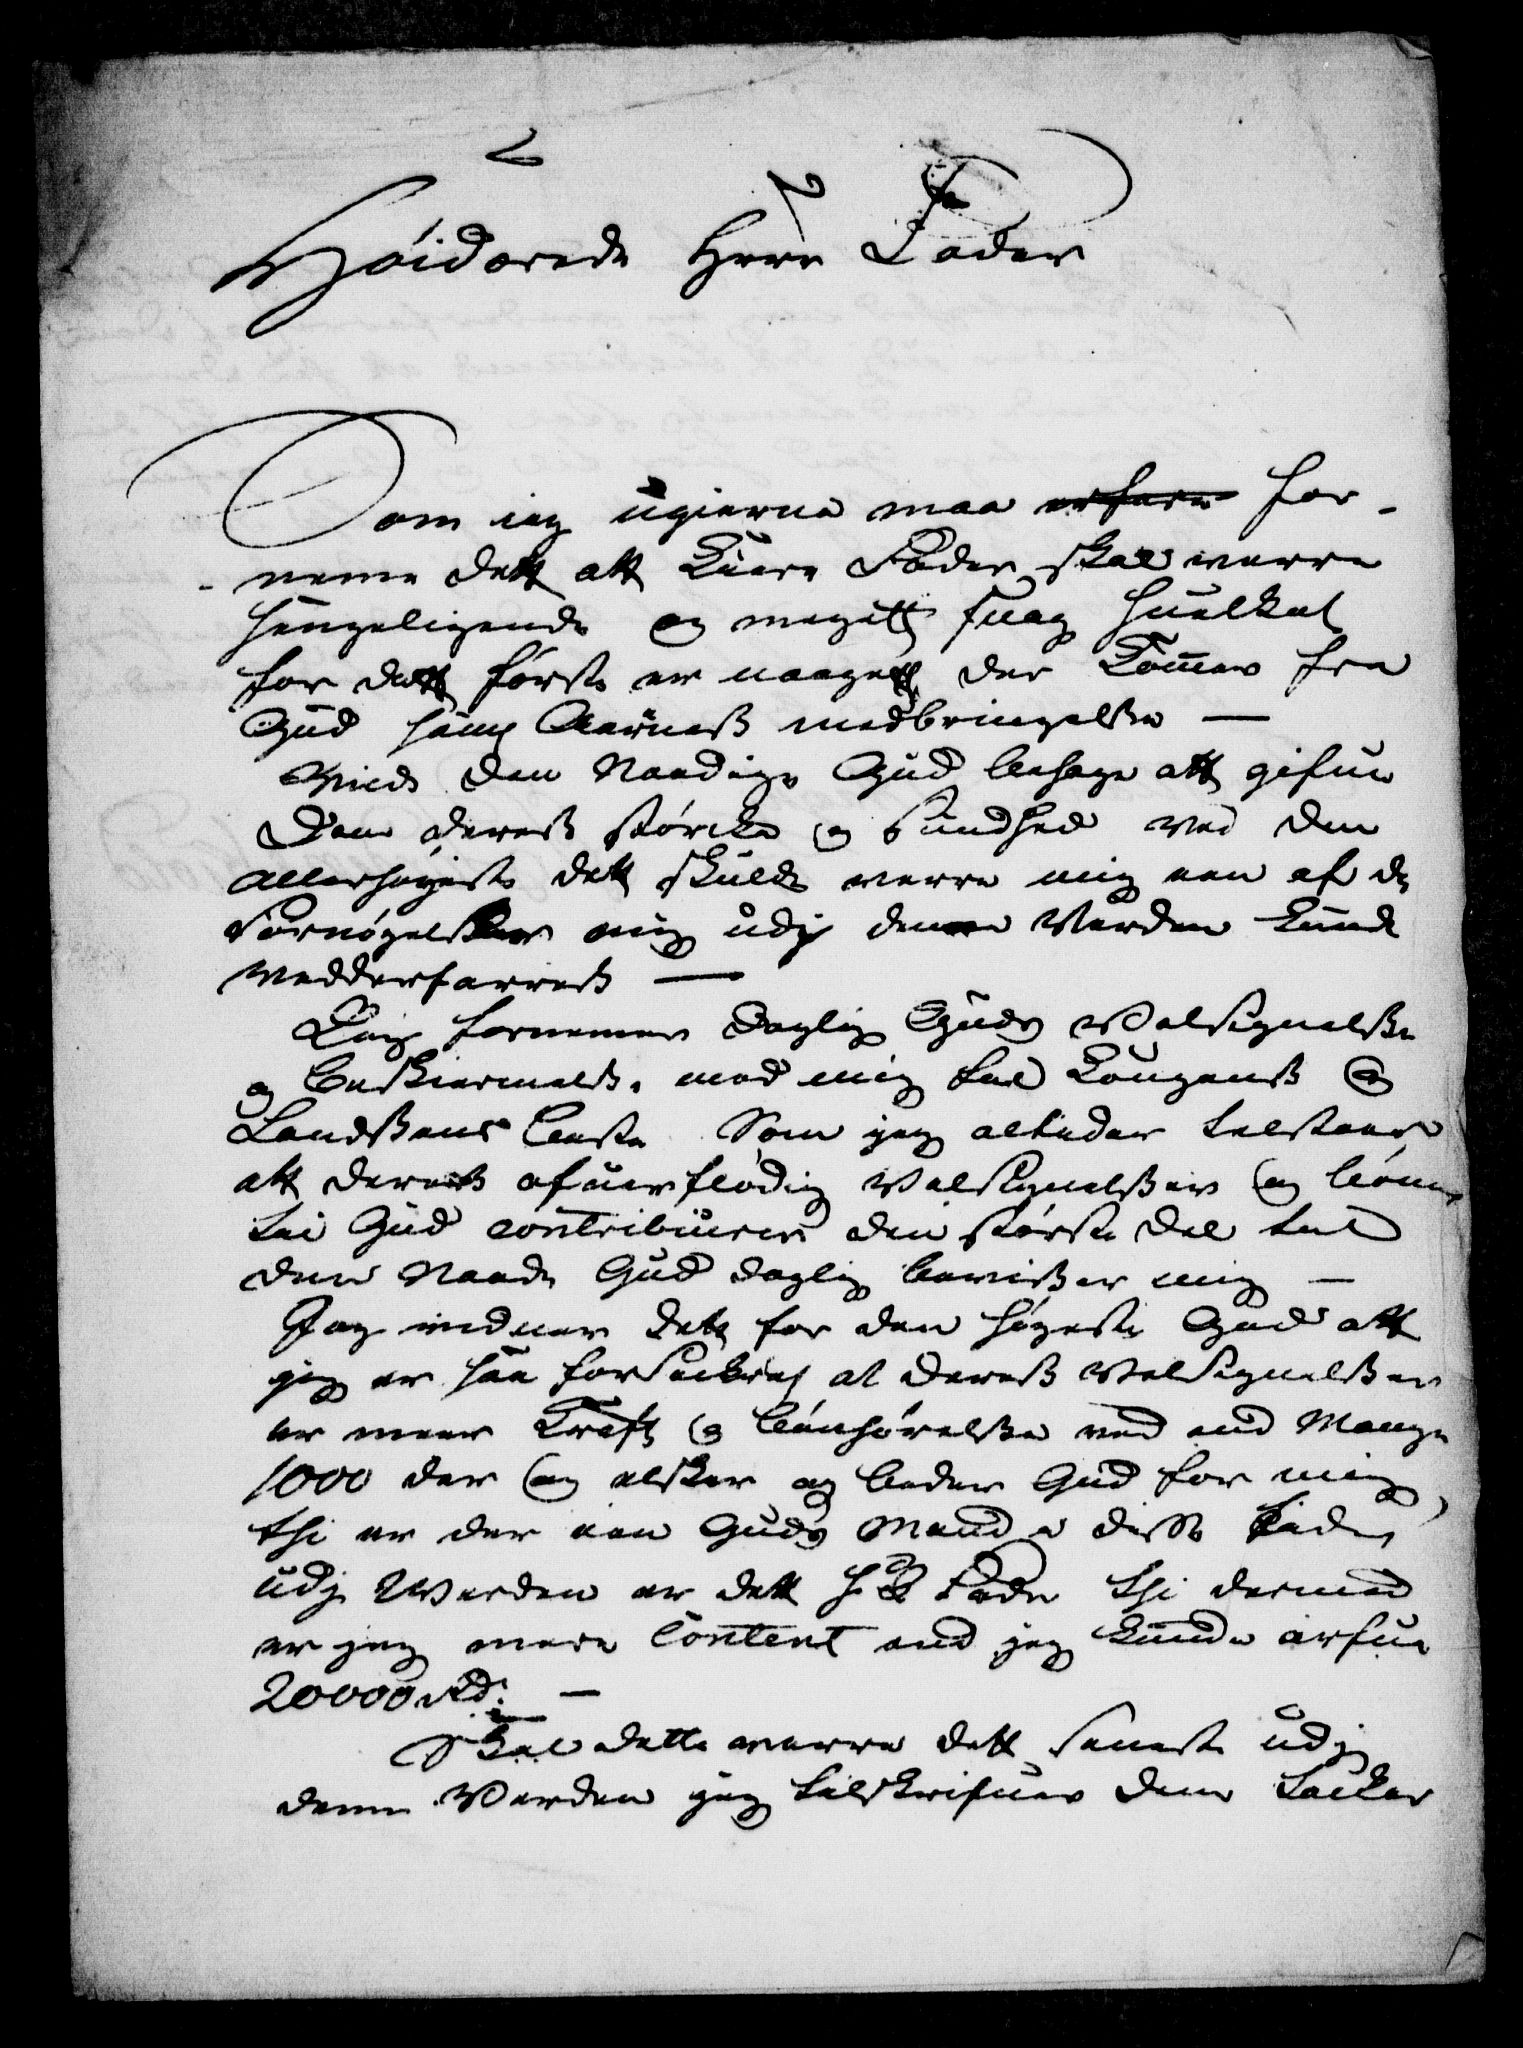 Høidærede Herr Fader
Som ieg ugierne maa erfare for-
-neme dett att Kiere Fader skal werre
sengeligende og megett suag huelket
for dett første er naagett der Kommer fra
Gud samt Aarness medbringelße —
Wilde den Naadige Gud behage att gifue
Dem deress störcke og Sundhed ved den
allerhøyeste dett skulde werre mig een af de
Fornøgelsser mig udj denne Verden kunde
wedderfarress —
Jeg fornemer Daglig Guds Velsignelße
og beskiermelse med mig til Kongens og
Landßens beste Som jeg altider tilstaar
att deress ofuerflødig Velsignelßer og bönner
til Gud contribuerer den störste del til
den Naade Gud daglig bevißer mig —
Jeg vidner dett for den høyeste Gud att
jeg er saa forsickret at deress Velsignelßer
er meer Krafft og bönhørelße ved end Mange
1000 der og elsker og beder Gud for mig,
thi er der een Guds Mand i disse tider
udj Werden er dett H Fader thi dermed
er jeg mere Content end jeg kunde arfue
20000 Rd: —
Skal dette werre dett seneste udj
denne Verden jeg tilskrifuer dem tacker